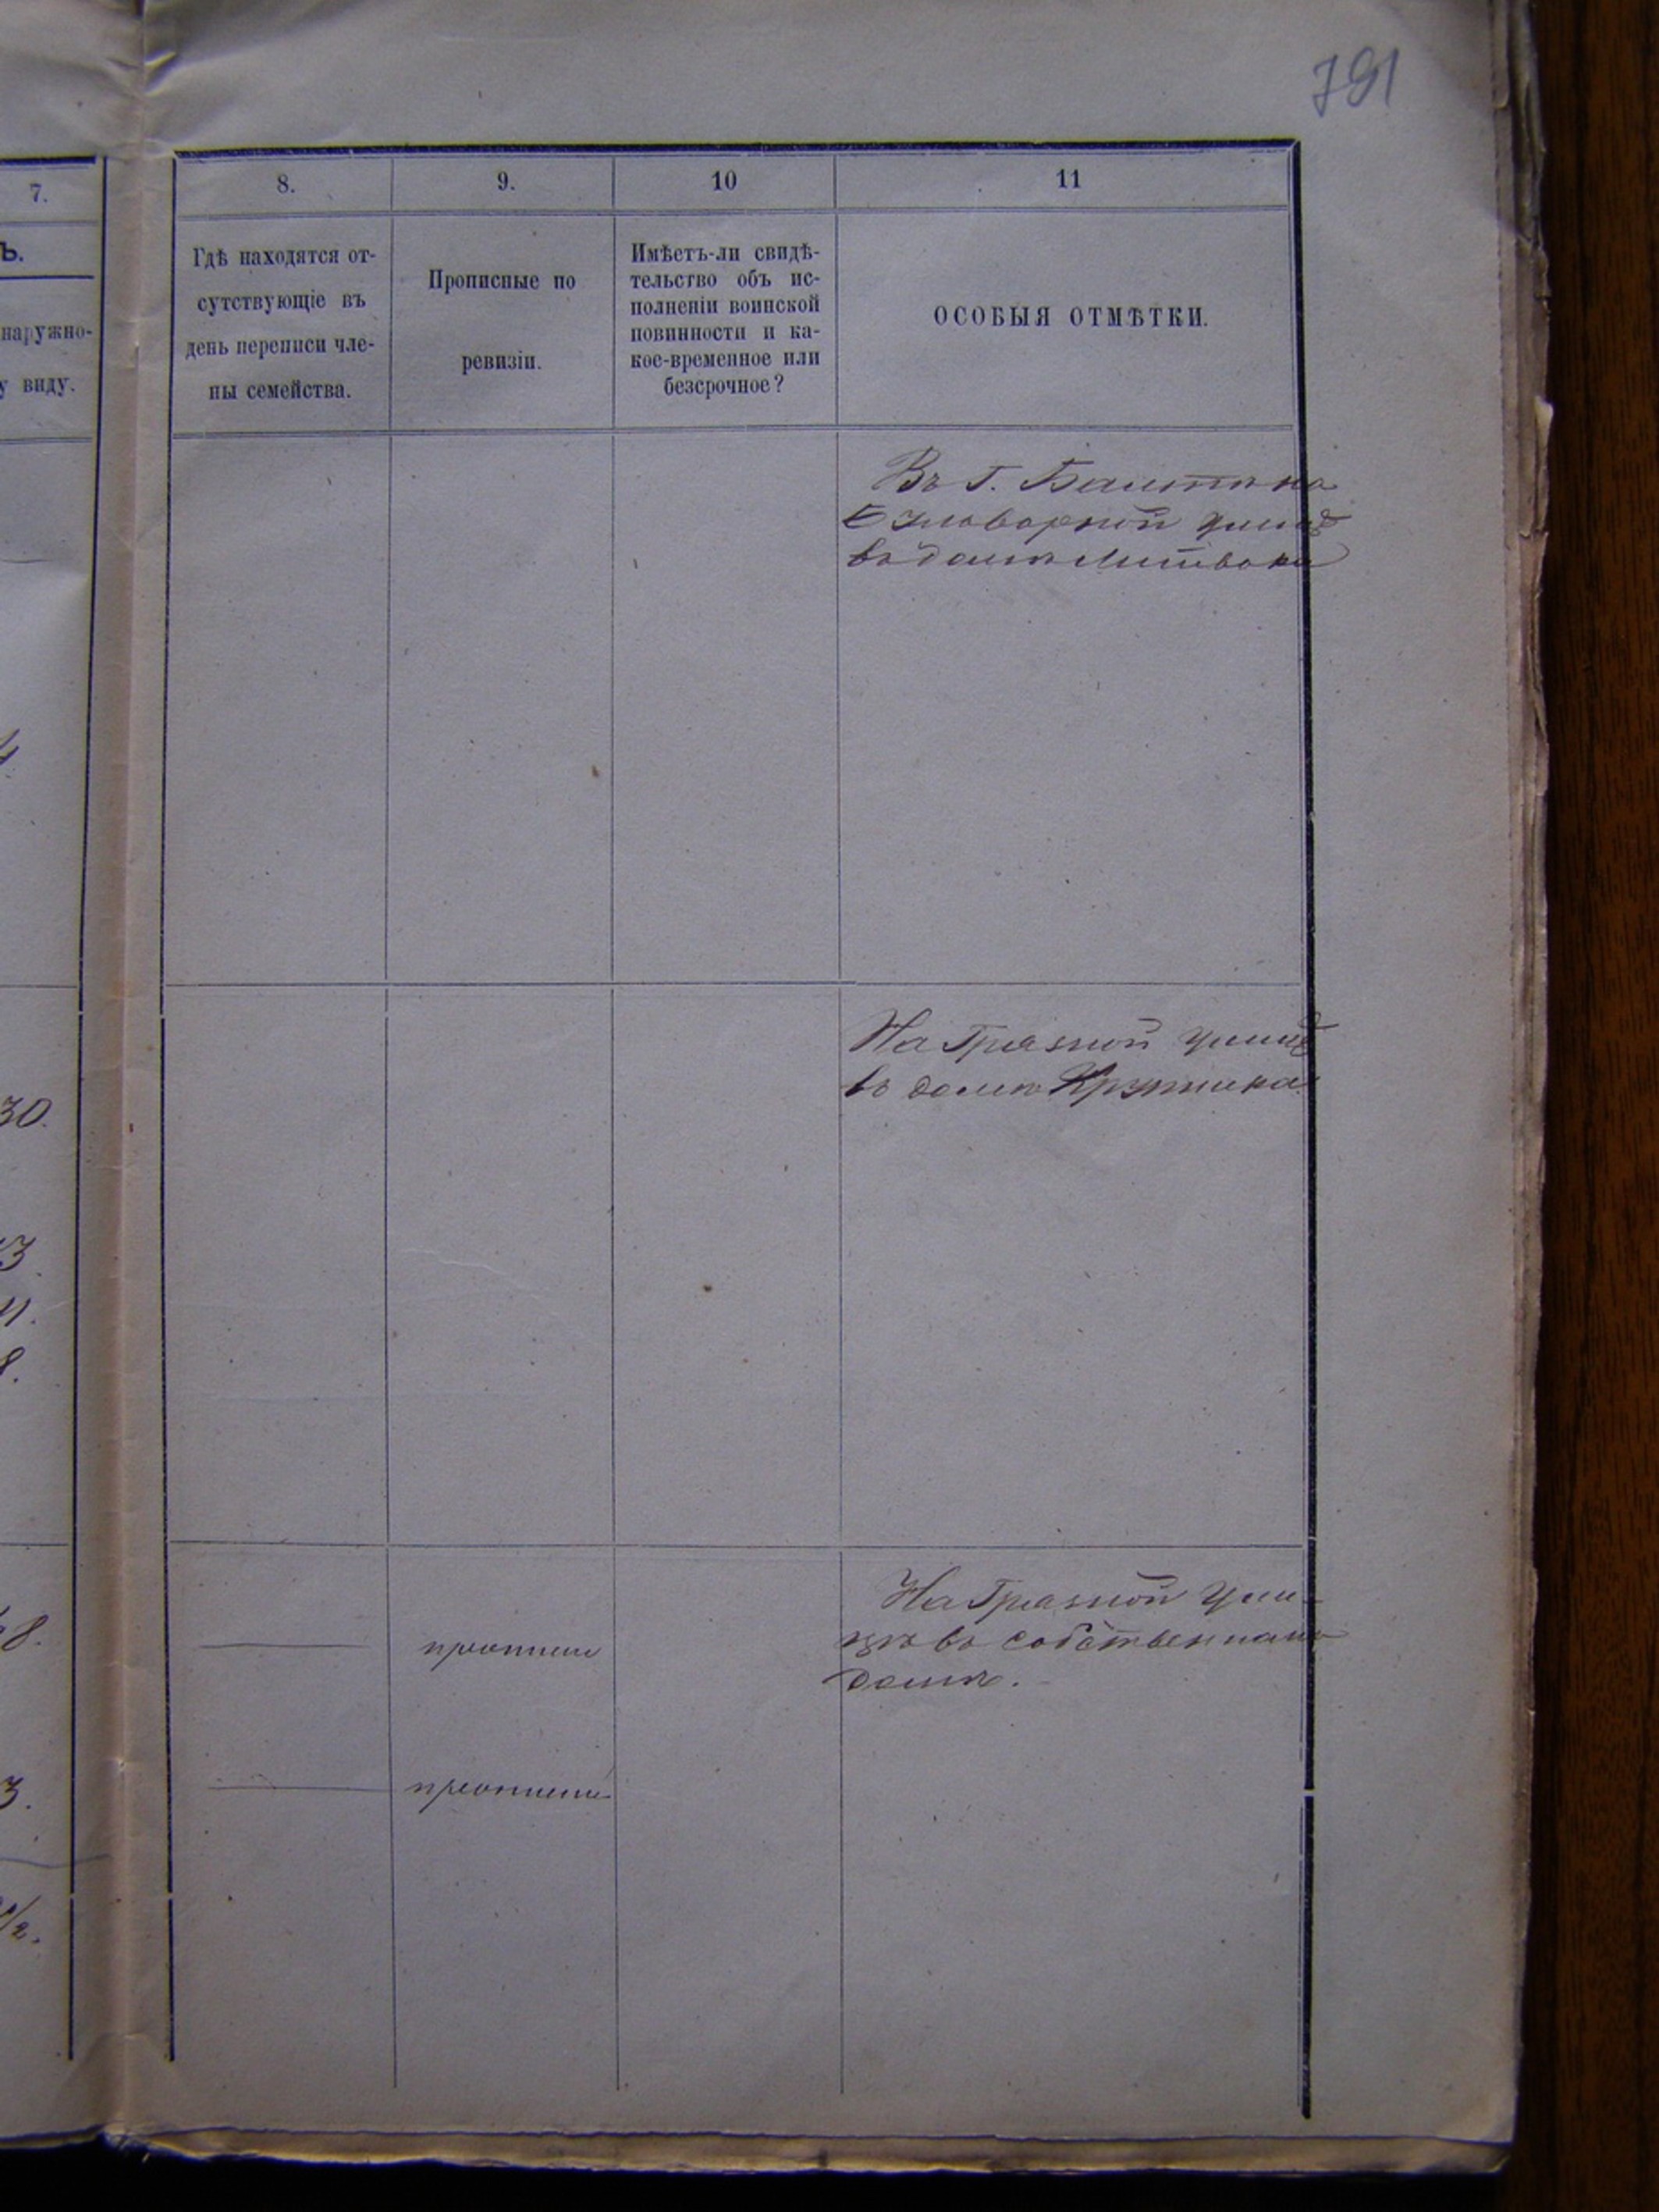 791
7.
8.
9.
10
11
Ъ.
наружно-
у виду.
Гдѣ находятся от-
сутствующіе въ
день переписи чле-
ны семейства.
Прописные по
ревизіи.
Имѣетъ-ли свидѣ-
тельство объ ис-
полненіи воинской
повинности и ка-
кое-временное или
безсрочное?
ОСОБЫЯ ОТМѢТКИ.
Въ г.
улицѣ
въ домѣ Литвака
30.
3
11.
8.
На Грязной улицѣ
въ домѣ
8.
На Грязной ули-
цѣ въ собственномъ
домѣ.
3.
1/2.